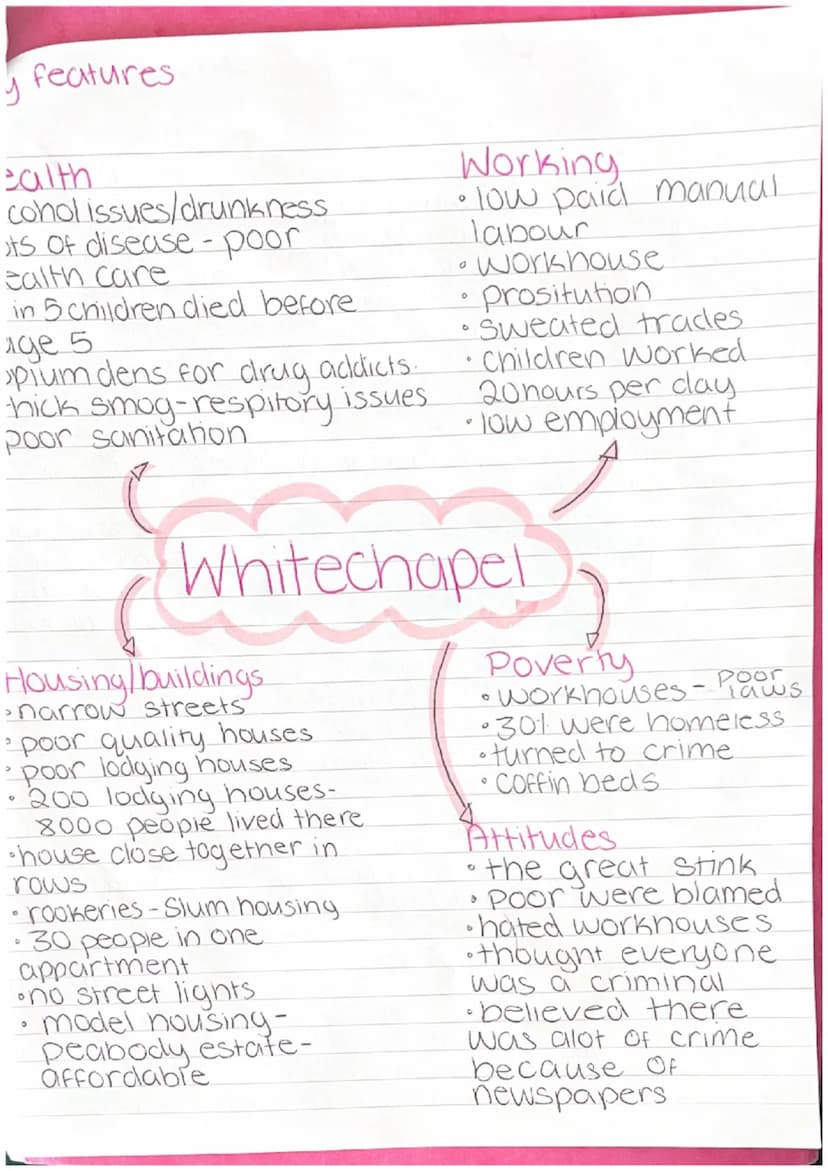 y features
ealth
cohol issues/drunkness
ots of disease - poor
ealth care
in 5 children died before
age 5
opium dens for drug addicts.
hick smog-respitory issues
poor sanitation
Working
• low paid manual
labour
• workhouse
• prositution
• sweated trades
• children worked
20hours per day
• low employment
Whitechapel
Housing/buildings
• narrow streets
• poor quality houses
• poor lodging houses
• 200 lodging houses-
8000 people lived there
• house close together in
rows
• rookeries - Slum housing
• 30 people in one
appartment
• no street lights
• model housing-
peabody estate-
affordable
Poverty
• workhouses - poor laws
• 30% were homeless
• turned to crime
• coffin beds
Attitudes
• the great stink
• poor were blamed
• hated workhouses
• thought everyone
was a criminal
• believed there
was alot of crime
because of
newspapers